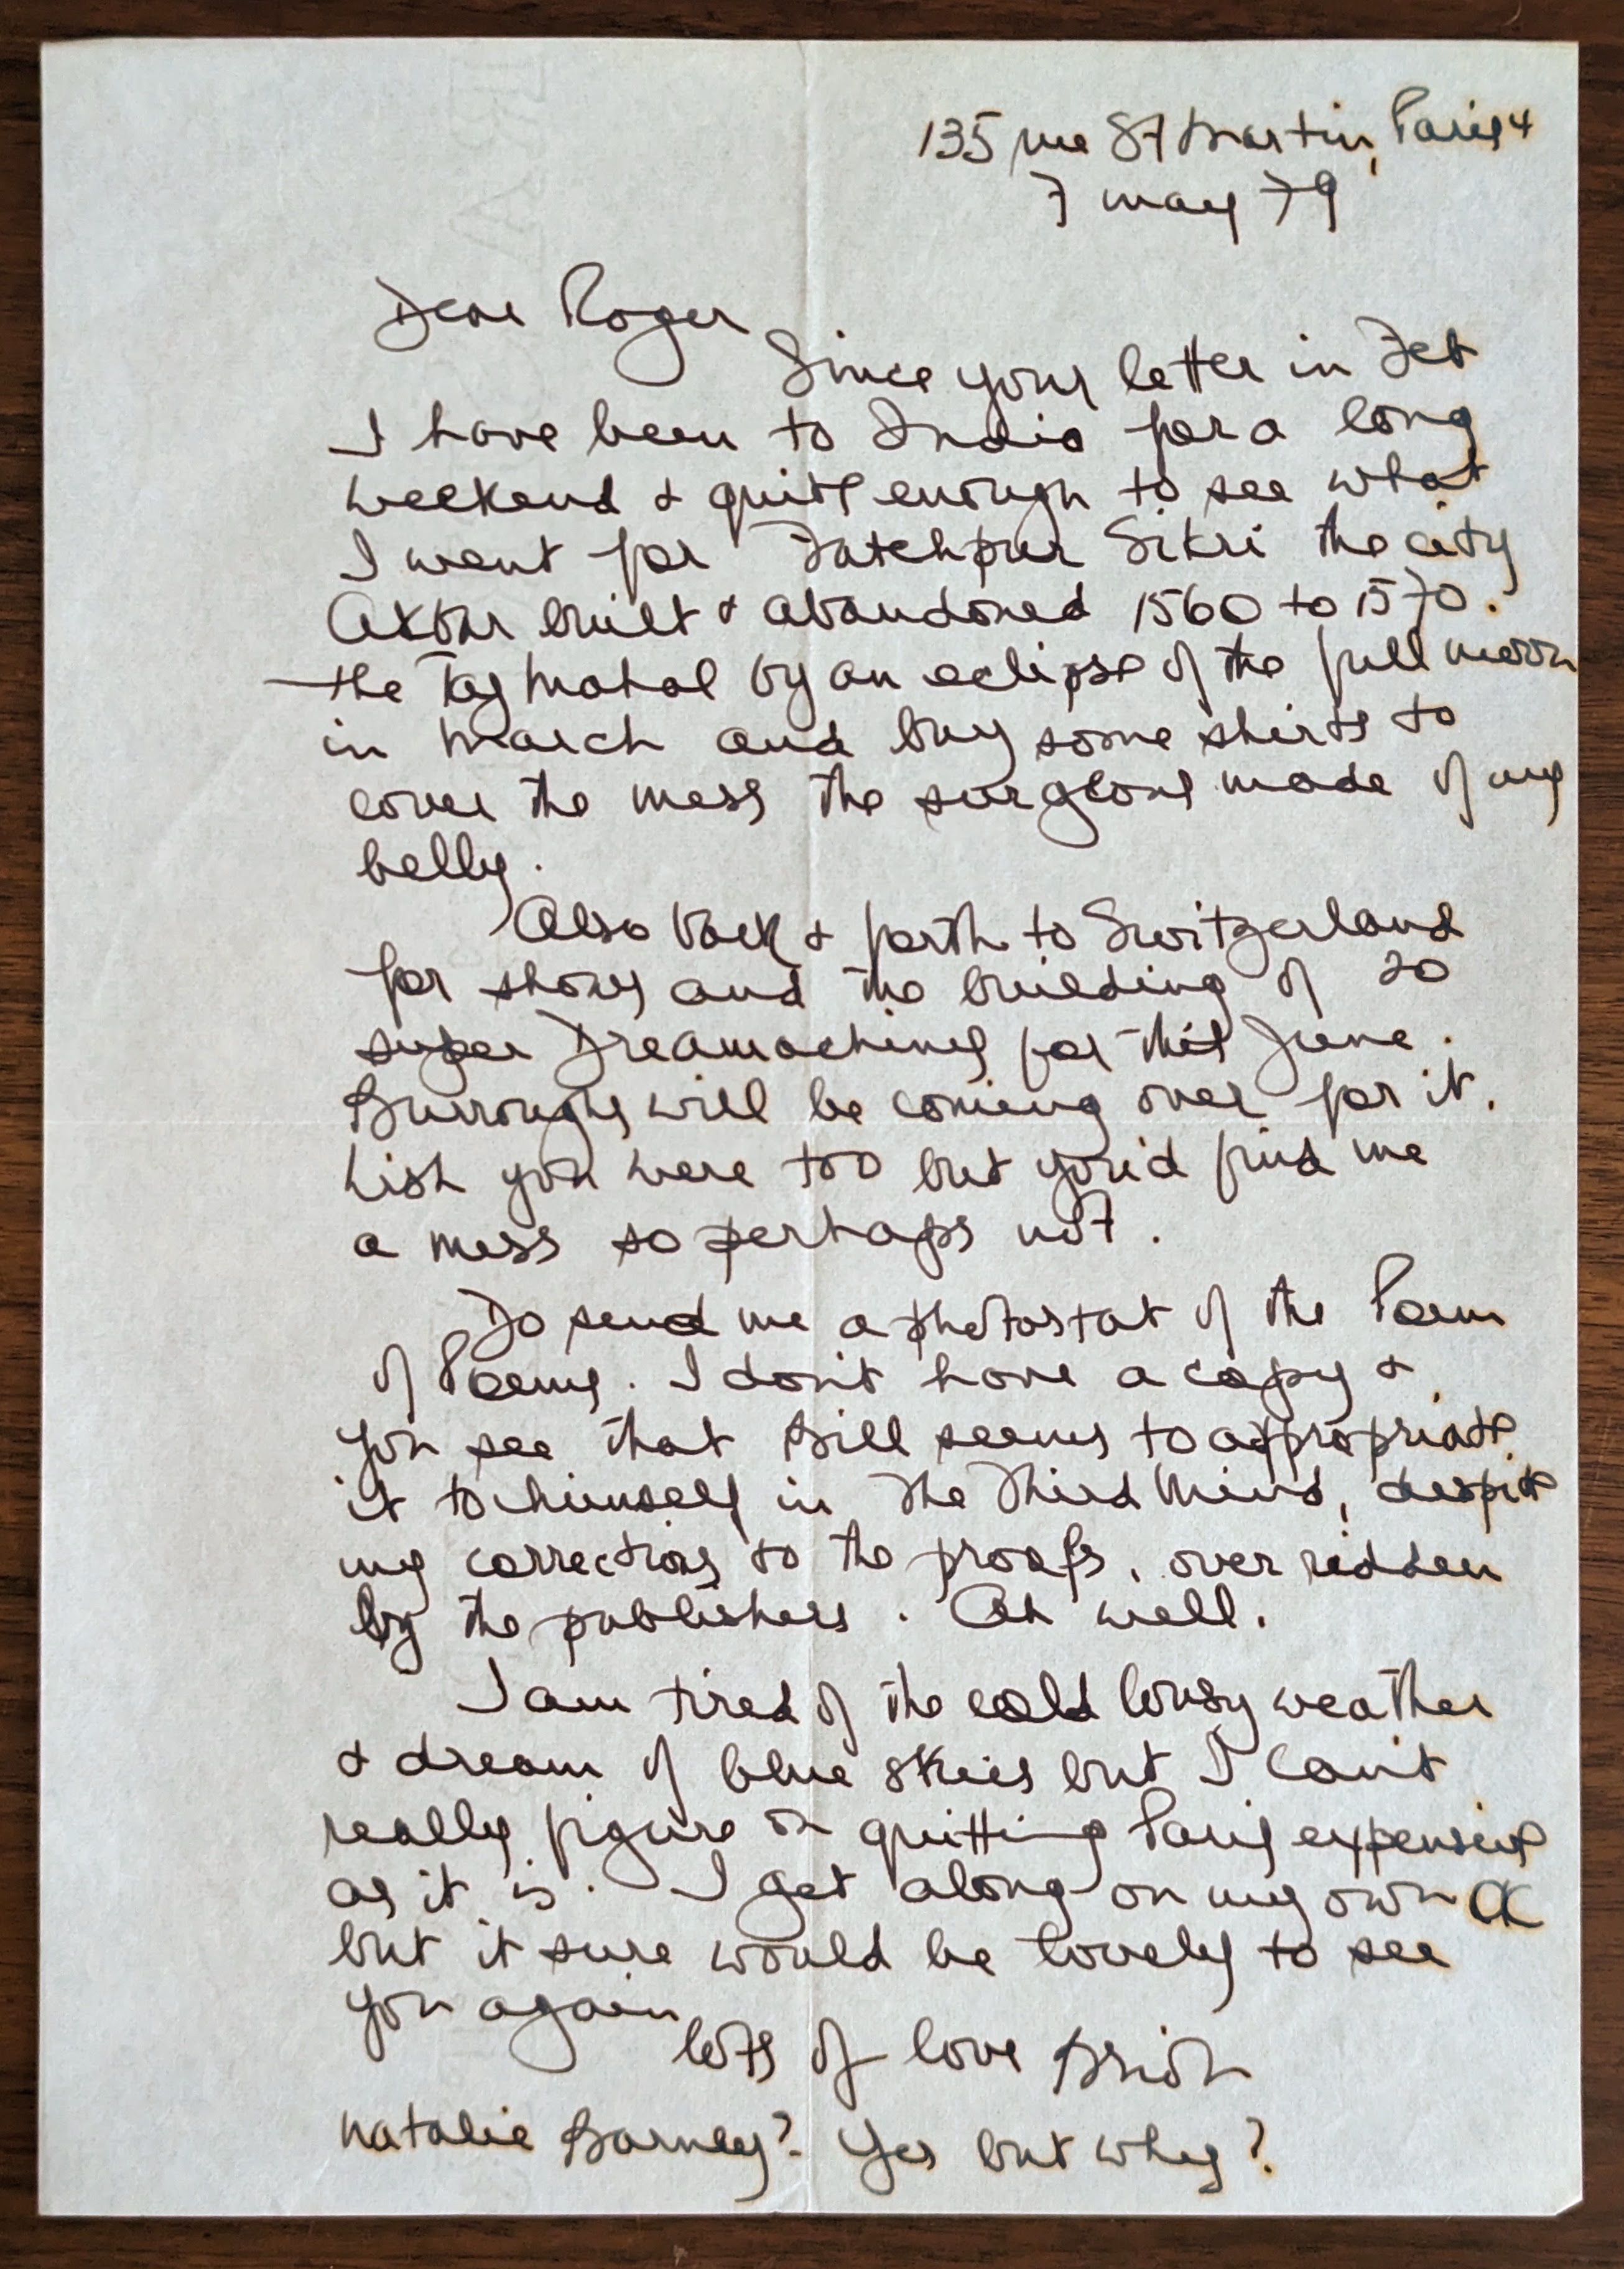 135 rue St Martin, Paris 4
7 may 79
Dear Roger
Since your letter in Feb
I have been to India for a long
weekend & quite enough to see what
I went for Fatehpur Sikri the city
Akbar built & abandoned 1560 to 1570.
the Taj Mahal by an eclipse of the full moon
in March and buy some shirts to
cover the mess the surgeons made of my
belly.
Also back & forth to Switzerland
for shows and the building of 20
super Dreamachines for this June.
Burroughs will be coming over for it.
Wish you were too but you'd find me
a mess so perhaps not.
Do send me a photostat of the Poem
of Poems. I don't have a copy &
you see that Bill seems to appropriate
it to himself in The Third Mind, despite
my corrections to the proofs, over ridden
by the publishers. Ah well.
I am tired of the cold lousy weather
& dream of blue skies but I can't
really figure on quitting Paris expensive
as it is. I get along on my own OK
but it sure would be lovely to see
you again
lots of love Brion
Natalie Barney? Yes but why?